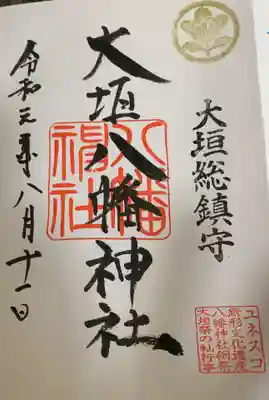 大垣総鎮守
大垣八幡神社
八幡
神社
令和元年八月十一日
ユネスコ
無形文化遺産
八幡神社例祭
大垣祭の軕行事